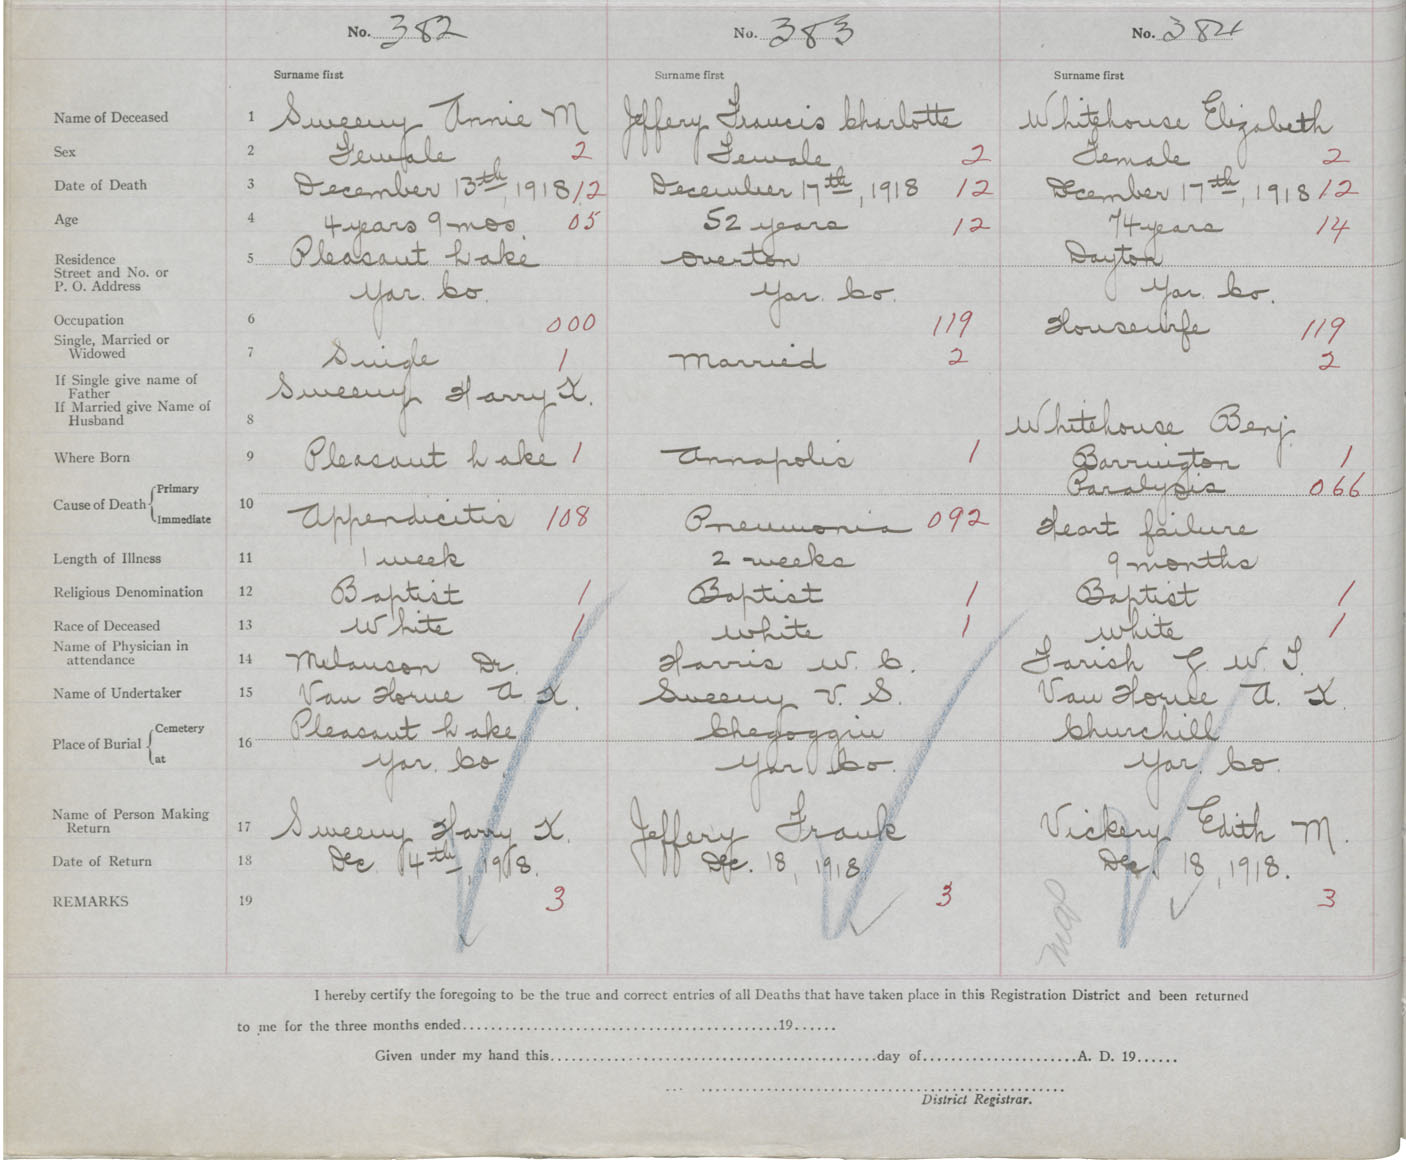 No. 382 No. 383 No. 384
Surname first Surname first Surname first
Name of Deceased 1 Sweeny Annie M Jeffery Francis Charlotte Whitehouse Elizabeth
Sex 2 Female 2 Female 2 Female 2
Date of Death 3 December 13th, 1918 12 December 17th, 1918 12 December 17th, 1918 12
Age 4 4 years 9 mos. 05 52 years 12 74 years 14
Residence 5 Pleasant Lake Overton Dayton
Street and No. or
P. O. Address Yar. Co. Yar. Co. Yar. Co.
Occupation 6 000 119 Housewife 119
Single, Married or
Widowed 7 Single 1 Married 2 2
If Single give name of
Father Sweeny Harry K.
If Married give Name of
Husband 8 Whitehouse Benj.
Where Born 9 Pleasant Lake 1 Annapolis 1 Barrington 1
Primary Paralysis 066
Cause of Death 10
Immediate Appendicitis 108 Pneumonia 092 Heart failure
Length of Illness 11 1 week 2 weeks 9 months
Religious Denomination 12 Baptist 1 Baptist 1 Baptist 1
Race of Deceased 13 White 1 white 1 white 1
Name of Physician in
attendance 14 Melanson Dr. Harris W. C. Farish G W. T.
Name of Undertaker 15 Van Horne A K. Sweeny V. S. Van Horne A. K.
Cemetery Pleasant Lake Chegoggin Churchill
Place of Burial 16
at Yar. Co. Yar Co. Yar. Co.
Name of Person Making
Return 17 Sweeny Harry K. Jeffery Frank Vickery Edith M.
Date of Return 18 Dec. 14th, 1918. Dec. 18, 1918. Dec. 18, 1918.
REMARKS 19 3 3 3
I hereby certify the foregoing to be the true and correct entries of all Deaths that have taken place in this Registration District and been returned
to me for the three months ended..........19......
Given under my hand this..........day of..........A. D. 19......
District Registrar.